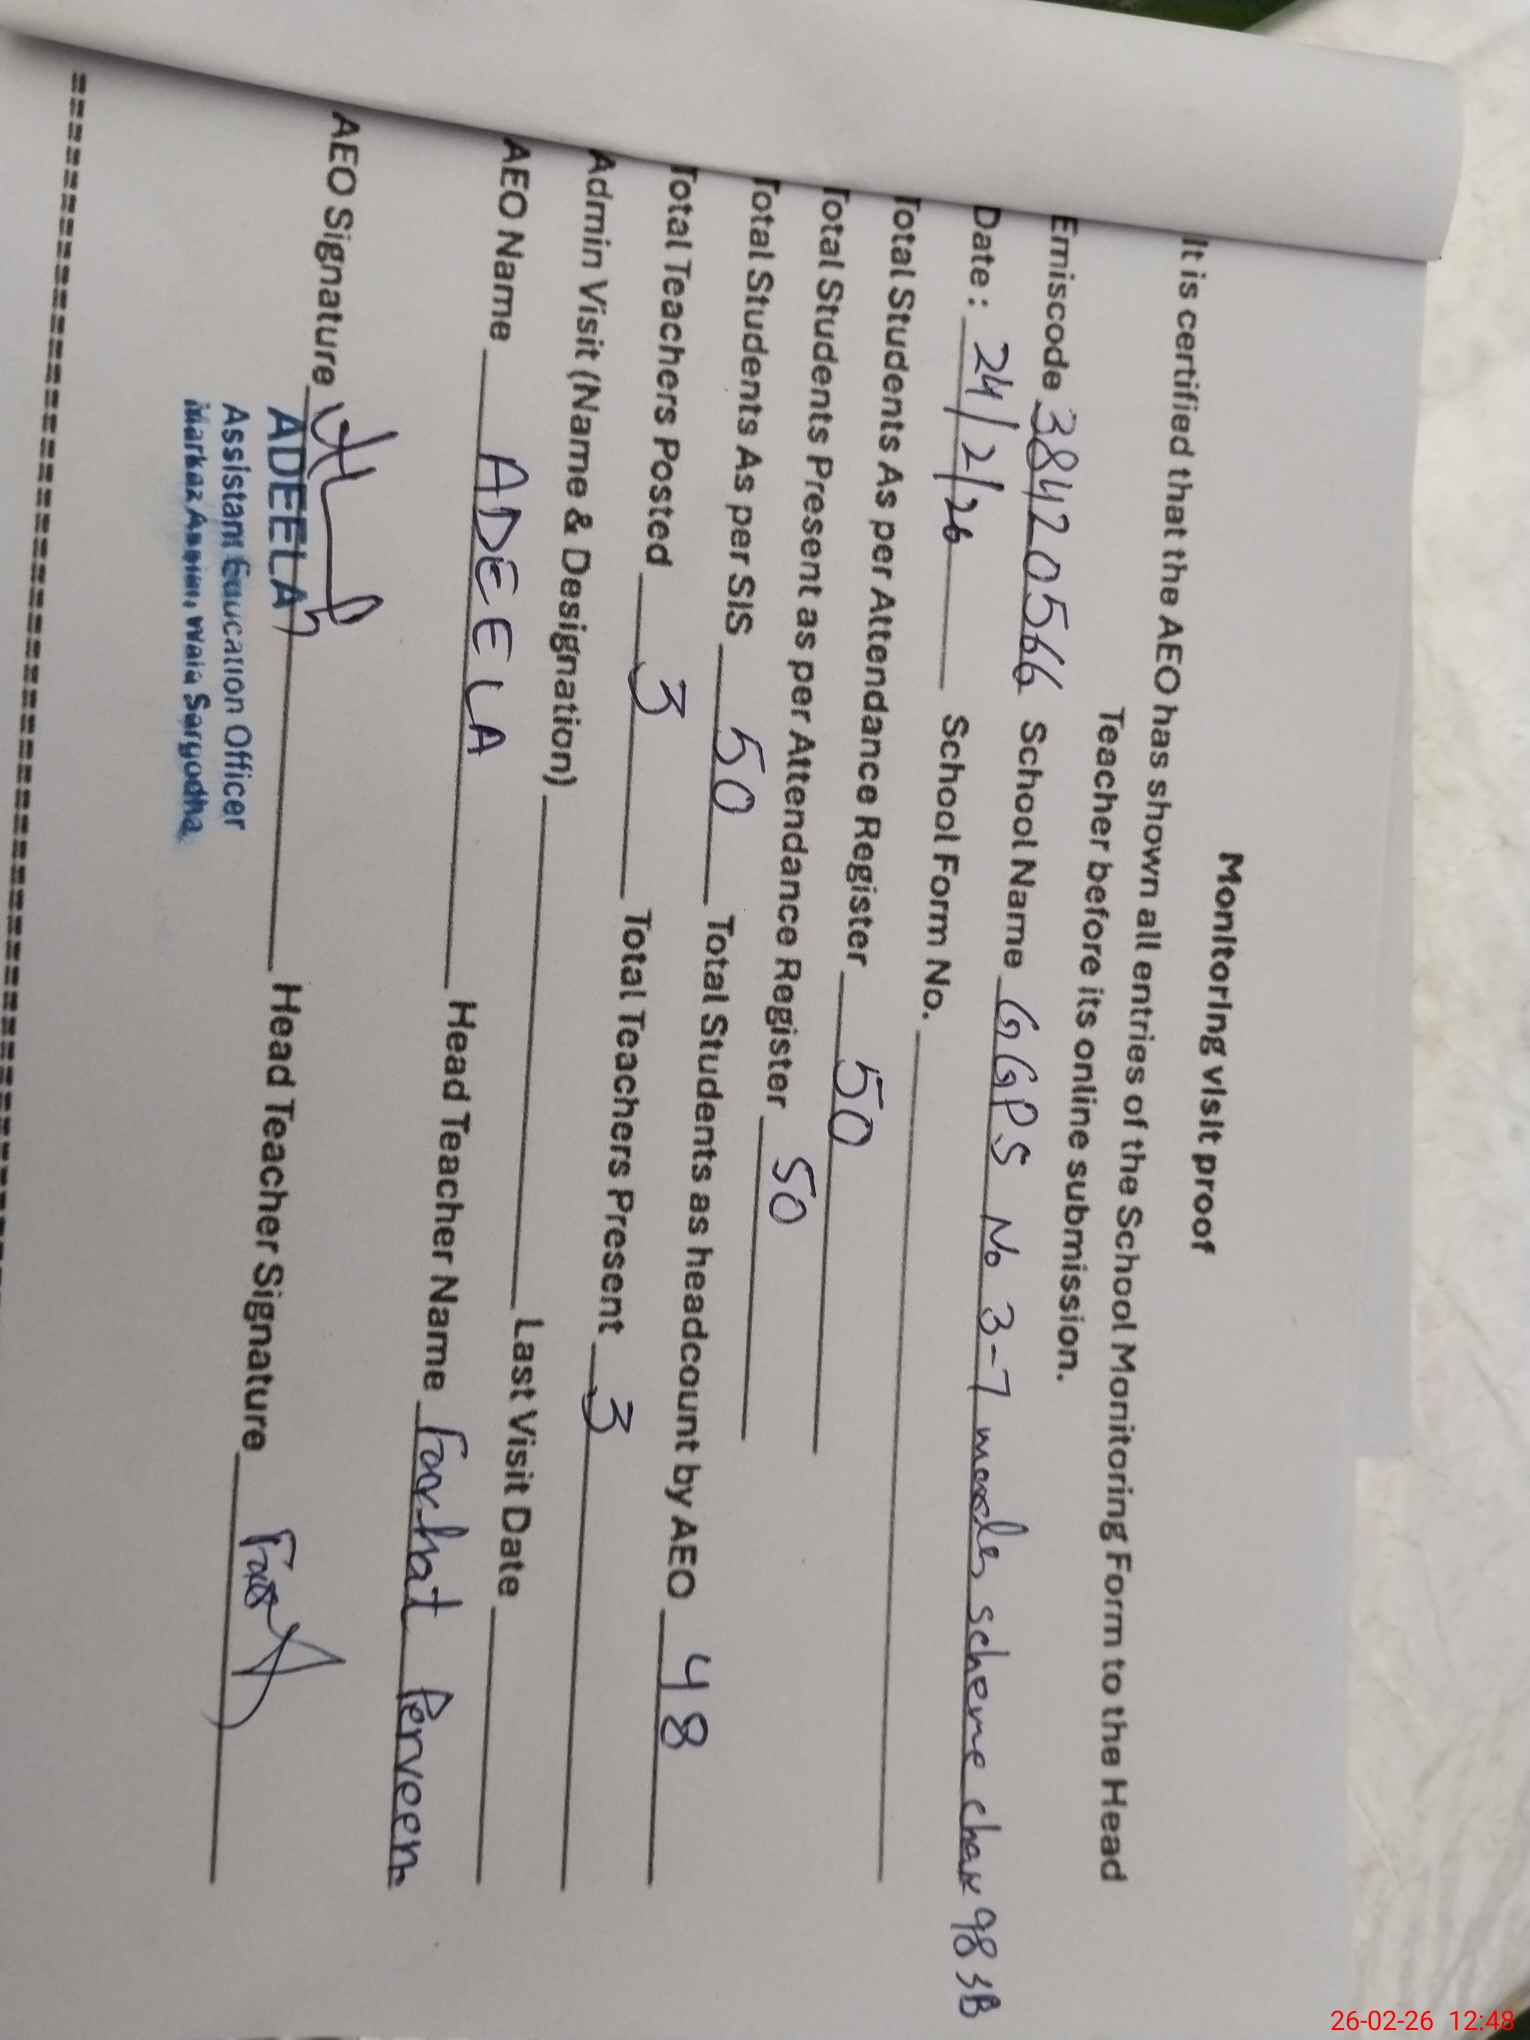 Monitoring visit proof
It is certified that the AEO has shown all entries of the School Monitoring Form to the Head
Teacher before its online submission.
Emiscode 38420566 School Name GGPS No 3-7 marla scheme chak 98 SB
Date: 24/2/26 School Form No.
Total Students As per Attendance Register 50
Total Students Present as per Attendance Register 50
Total Students As per SIS 50 Total Students as headcount by AEO 48
Total Teachers Posted 3 Total Teachers Present 3
Admin Visit (Name & Designation) Last Visit Date
AEO Name ADEELA Head Teacher Name Farhat Perveen
AEO Signature Head Teacher Signature
ADEELA
Assistant Education Officer
Markaz Sargodha
26-02-26 12:48